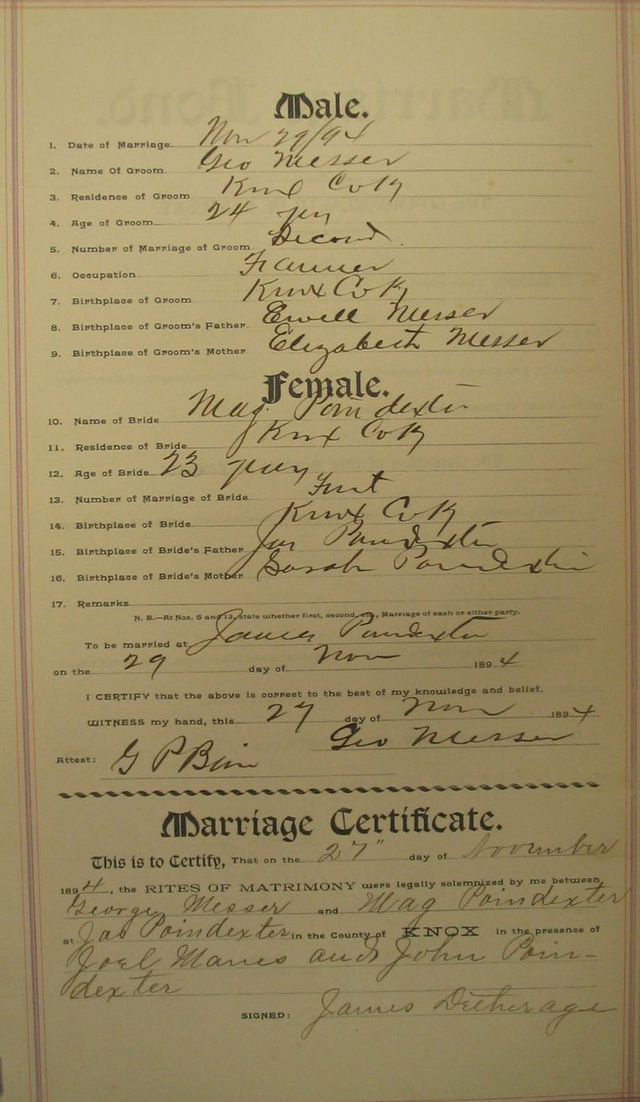 Male.
1. Date of Marriage Nov 29/94
2. Name Of Groom Geo Messer
3. Residence of Groom Knox Co Ky
4. Age of Groom 24 yrs
5. Number of Marriage of Groom Second.
6. Occupation Farmer
7. Birthplace of Groom Knox Co Ky
8. Birthplace of Groom's Father Ewell Messer
9. Birthplace of Groom's Mother Elizabeth Messer
Female.
10. Name of Bride Mag. Poindexter
11. Residence of Bride Knox Co Ky
12. Age of Bride 23 years
13. Number of Marriage of Bride First
14. Birthplace of Bride Knox Co Ky
15. Birthplace of Bride's Father Jas Poindexter
16. Birthplace of Bride's Mother Sarah Poindexter
17. Remarks
N. B.—At Nos. 5 and 13, state whether first, second, etc., Marriage of each or either party.
To be married at James Poindexter
on the 29 day of Nov 1894
I CERTIFY that the above is correct to the best of my knowledge and belief.
WITNESS my hand, this 27 day of Nov 1894
Geo Messer
Attest: G P
Marriage Certificate.
This is to Certify, That on the 27" day of November
1894, the RITES OF MATRIMONY were legally solemnized by me between
George Messer and Mag Poindexter
at Jas Poindexter in the County of KNOX in the presence of
Joel and John Poin-
dexter
SIGNED: James Detherage